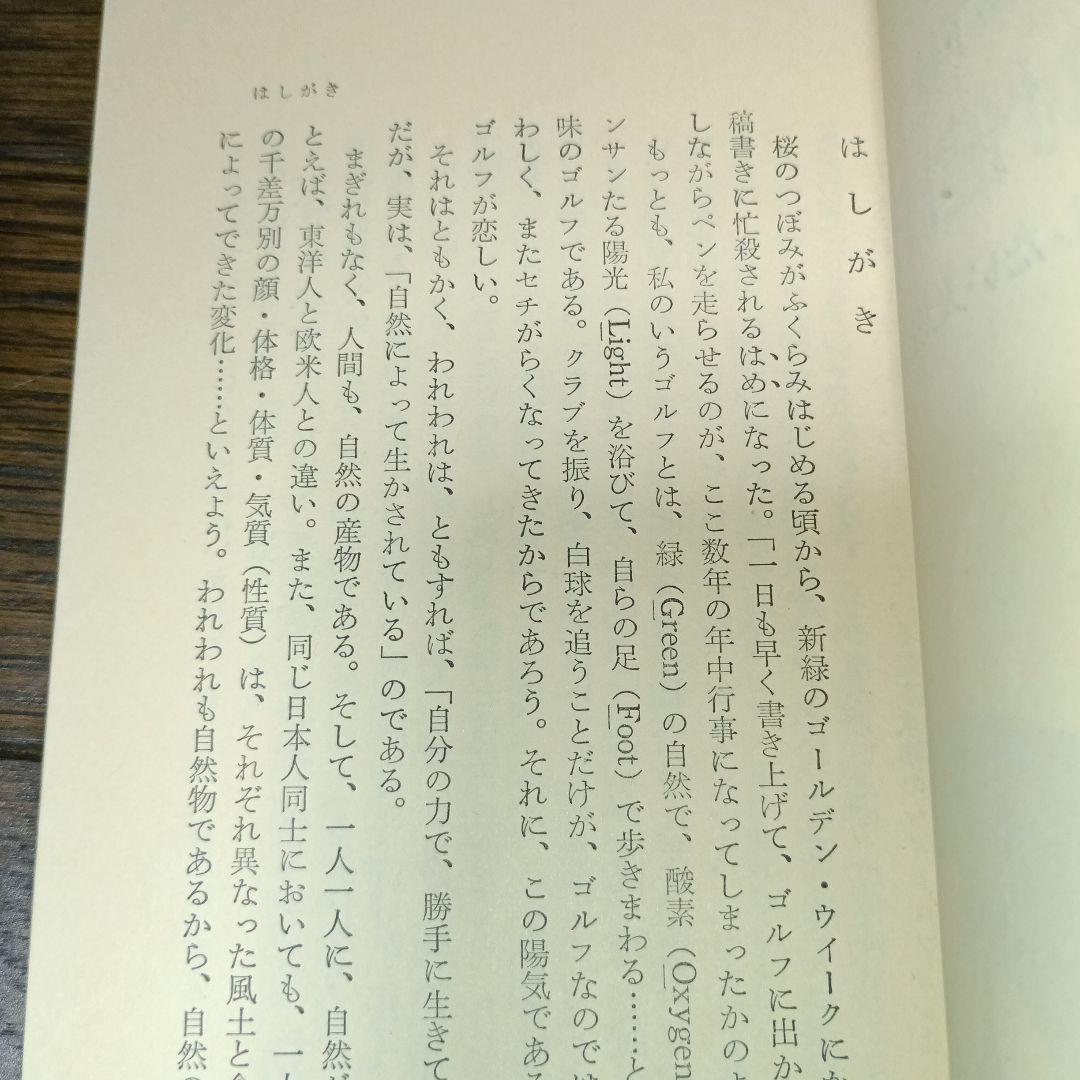 はしがき
はしがき
桜のつぼみがふくらみはじめる頃から、新緑のゴールデン・ウイークにか
稿書きに忙殺されるはめになった。「一日も早く書き上げて、ゴルフに出か
しながらペンを走らせるのが、ここ数年の年中行事になってしまったかのよ
もっとも、私のいうゴルフとは、緑（Green）の自然で、酸素（Oxygen
ンサンたる陽光（Light）を浴びて、自らの足（Foot）で歩きまわる……と
味のゴルフである。クラブを振り、白球を追うことだけが、ゴルフなのでは
わしく、またセチがらくなってきたからであろう。それに、この陽気である
ゴルフが恋しい。
それはともかく、われわれは、ともすれば、「自分の力で、勝手に生きて
だが、実は、「自然によって生かされている」のである。
まぎれもなく、人間も、自然の産物である。そして、一人一人に、自然が
とえば、東洋人と欧米人との違い。また、同じ日本人同士においても、一
の千差万別の顔・体格・体質・気質（性質）は、それぞれ異なった風土と
によってできた変化……といえよう。われわれも自然物であるから、自然の